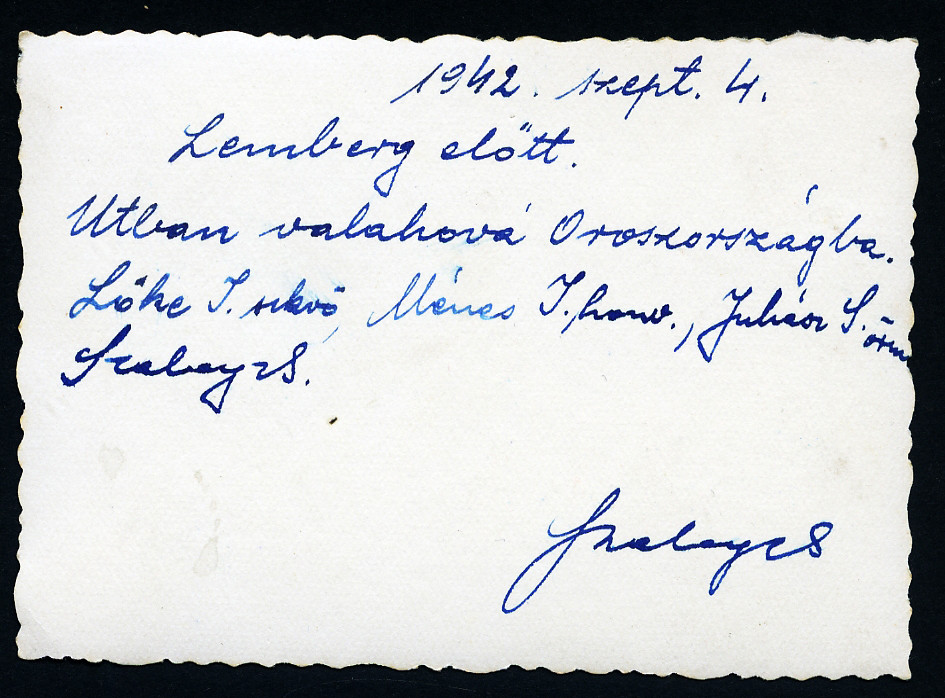 1942. szept. 4.
Lemberg előtt.
Utban valahová Oroszországba.
Lőke I. szkvő, Ménes I. honv., Juhász S. őrm
Szabay S.
Szabay S